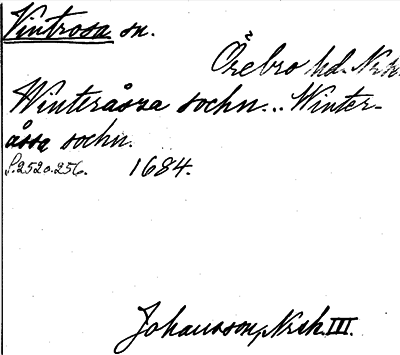 Vintrosa sn.
Örebro hd. Nrk.
Winteråssa sochn... Winter-
åssa sochn.
S. 252 o. 256. 1684.
Johansson, Nrsk. III.